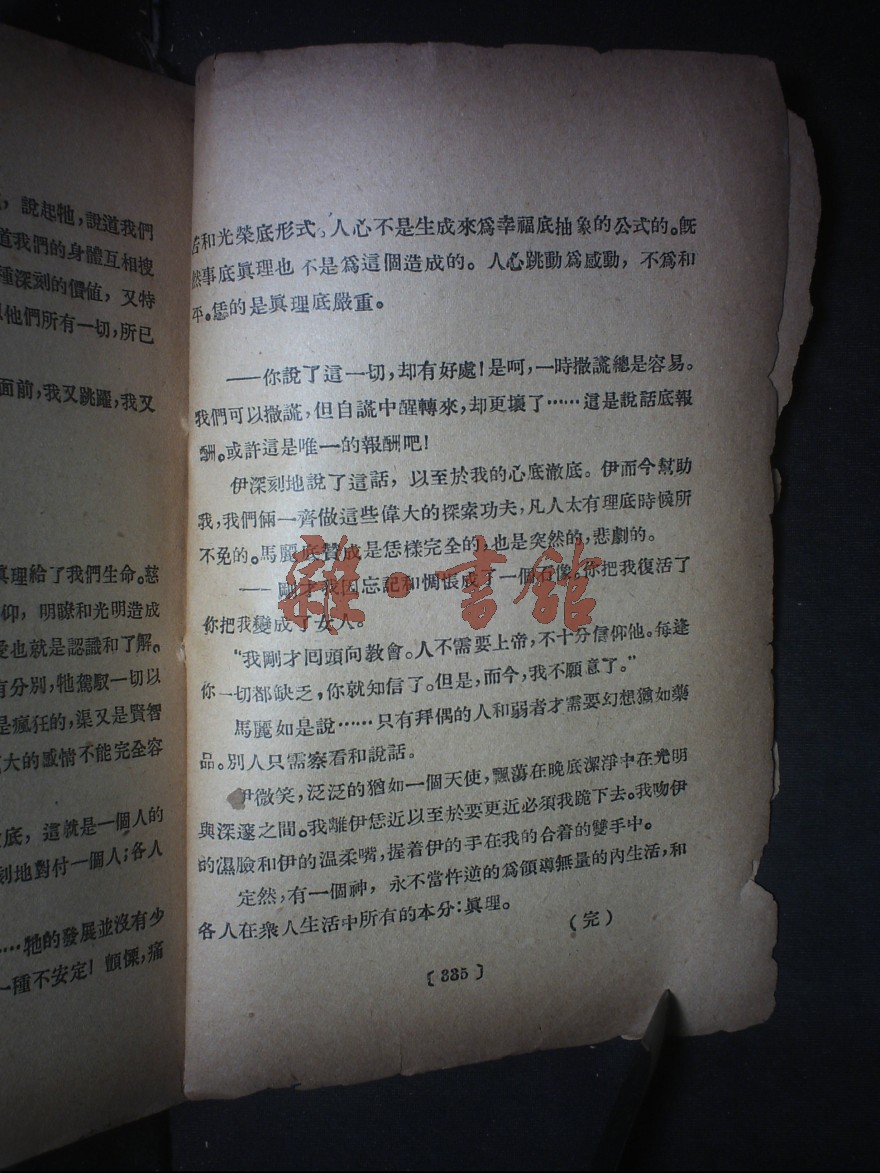 ，說起牠，說道我們
道我們的身體互相搜
種深刻的價值，又特
他們所有一切，所已
面前，我又跳躍，我又
眞理給了我們生命。慈
仰，明瞭和光明造成
愛也就是認識和了解。
有分別，牠駕馭一切以
是瘋狂的，渠又是賢智
大的感情不能完全容
底，這就是一個人的
刻地對付一個人；各人
…牠的發展並沒有少
一種不安定！顫慄，痛
苦和光榮底形式。人心不是生成來爲幸福底抽象的公式的。旣
然事底眞理也不是爲這個造成的。人心跳動爲感動，不爲和
平。恁的是眞理底嚴重。
——你說了這一切，却有好處！是呵，一時撒謊總是容易。
我們可以撒謊，但自謊中醒轉來，却更壞了……這是說話底報
酬。或許這是唯一的報酬吧！
伊深刻地說了這話，以至於我的心底澈底。伊而今幫助
我，我們倆一齊做這些偉大的探索功夫，凡人太有理底時候所
不免的。馬麗底贊成是恁樣完全的，也是突然的，悲劇的。
——剛才我因忘記和惆悵成了一個石像。你把我復活了
你把我變成了女人。
“我剛才囘頭向教會。人不需要上帝，不十分信仰他。每逢
你一切都缺乏，你就知信了。但是，而今，我不願意了。”
馬麗如是說……只有拜偶的人和弱者才需要幻想猶如藥
品。別人只需察看和說話。
伊微笑，泛泛的猶如一個天使，飄蕩在晚底潔淨中在光明
與深邃之間。我離伊恁近以至於要更近必須我跪下去。我吻伊
的濕臉和伊的温柔嘴，握着伊的手在我的合着的雙手中。
定然，有一個神，永不當忤逆的爲領導無量的內生活，和
各人在衆人生活中所有的本分：眞理。
（完）
〔335〕
雜·書館